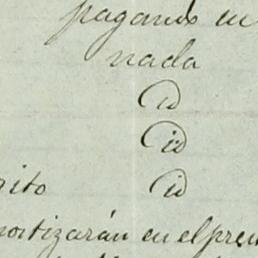 pagands en
nada
id
id
gito id
mortizarán en el prem